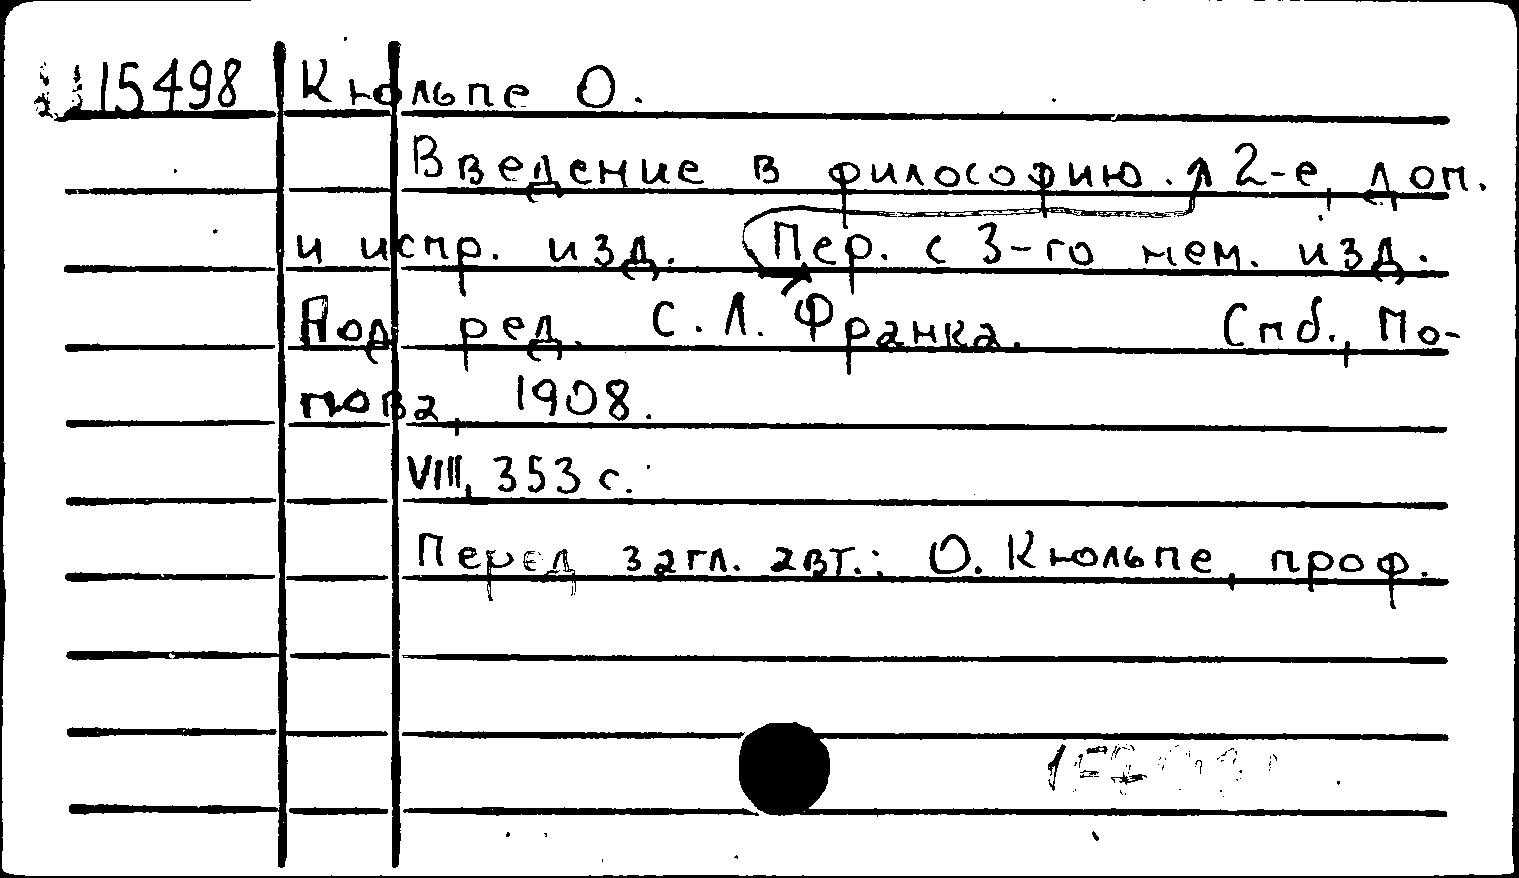 15498 Кюльпе О.
Введение в философию. 2-е, доп.
и испр. изд. Пер. с 3-го нем. изд.
Под ред. С.Л. Франка. Спб., По-
пова, 1908.
VIII, 353 с.
Перед загл. авт.: О. Кюльпе, проф.